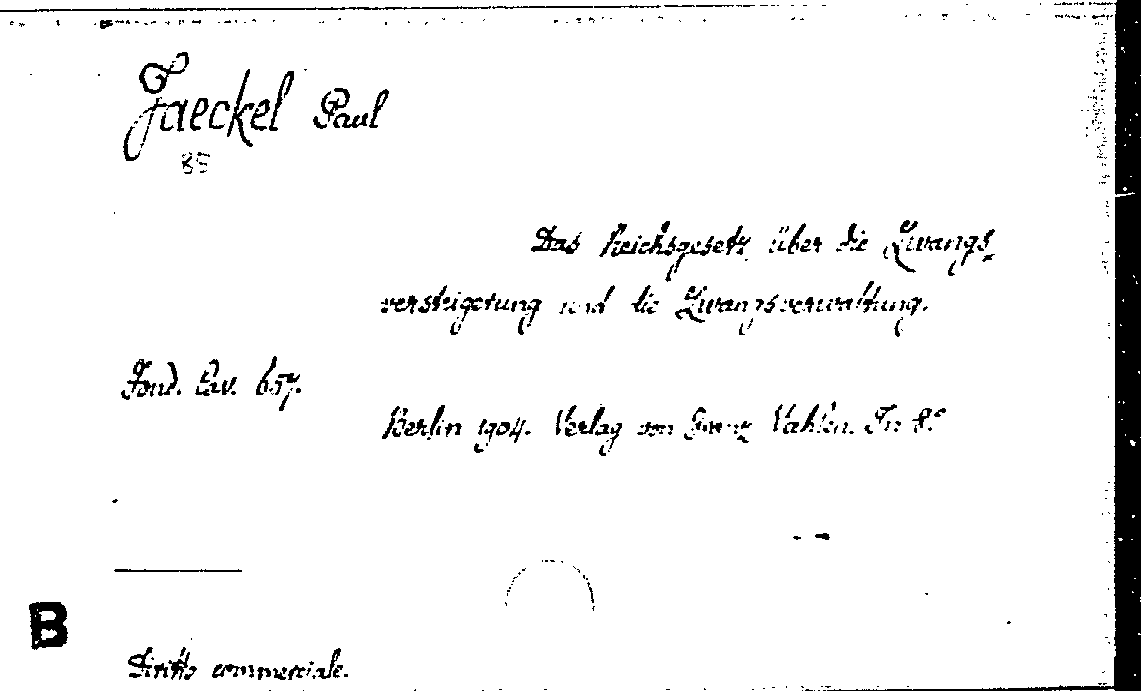 Jaeckel Paul
85
Das Reichsgesetz über die Zwangs-
versteigerung und die Zwangsverwaltung.
Fond. Cav. 657.
Berlin 1904. Verlag von Franz Vahlen. In 8.°
B
Diritto commerciale.